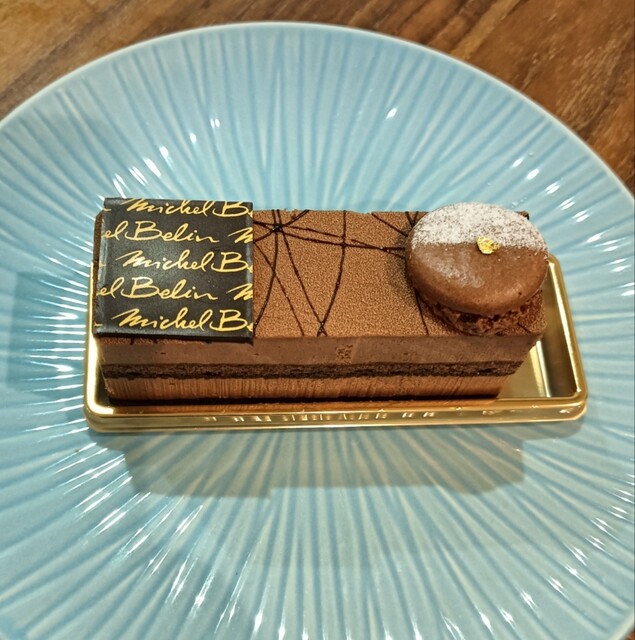 Michel B
el Belin M
Michel B
el Belin M
Michel B